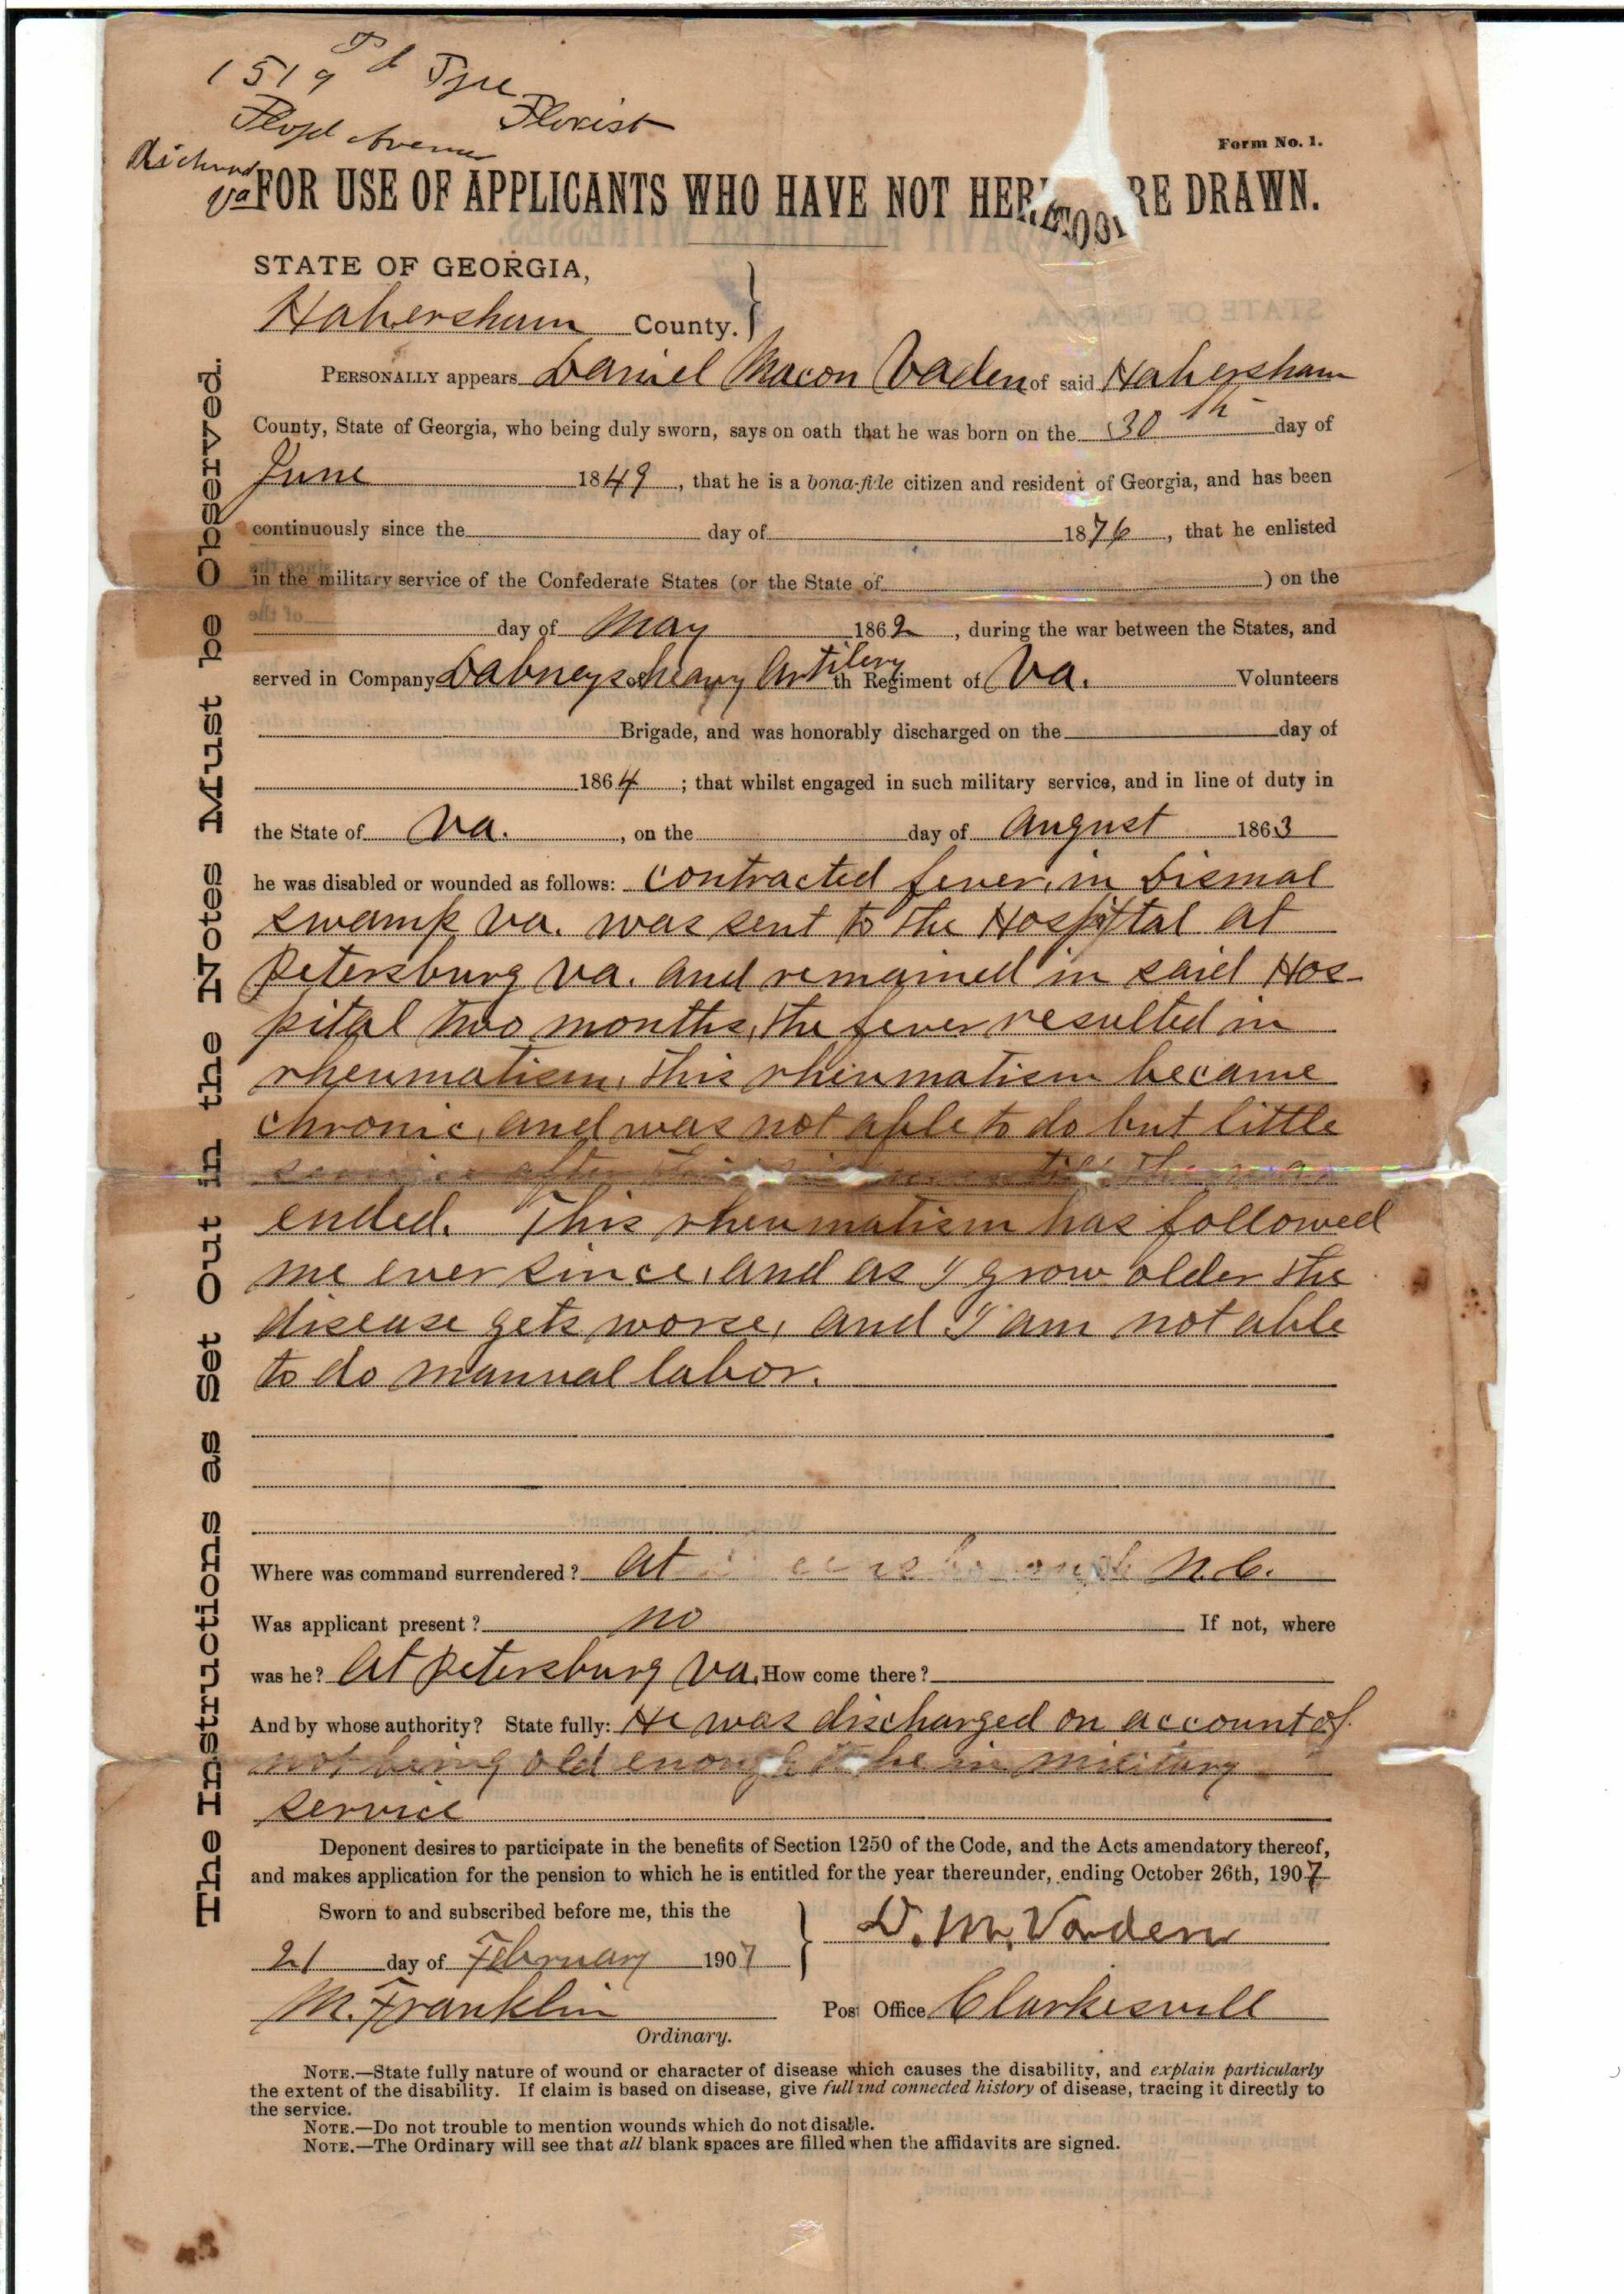 1519
Floyd Avenue Florist
Richmond
Va
Form No. 1.
FOR USE OF APPLICANTS WHO HAVE NOT HERETOFORE DRAWN.
STATE OF GEORGIA,
Habersham County.
PERSONALLY appears Daniel Macon Vaden of said Habersham
County, State of Georgia, who being duly sworn, says on oath that he was born on the 30th day of
June 1849, that he is a bona-fide citizen and resident of Georgia, and has been
continuously since the day of 1876, that he enlisted
in the military service of the Confederate States (or the State of ) on the
day of May 1862, during the war between the States, and
served in Company Dabneys heavy Artilery th Regiment of Va. Volunteers
Brigade, and was honorably discharged on the day of
1864; that whilst engaged in such military service, and in line of duty in
the State of Va., on the day of August 1863
he was disabled or wounded as follows: contracted fever, in Dismal
swamp Va. was sent to the Hospital at
Petersburg Va. and remained in said Hos-
pital two months, the fever resulted in
rheumatism, this rheumatism became
chronic, and was not able to do but little
service after this till the war
ended. This rheumatism has followed
me ever since, and as I grow older the
disease gets worse, and I am not able
to do manual labor.
Where was command surrendered? At Greensborough N.C.
Was applicant present? no If not, where
was he? At Petersburg Va. How come there?
And by whose authority? State fully: He was discharged on account of
not being old enough to be in military
service
Deponent desires to participate in the benefits of Section 1250 of the Code, and the Acts amendatory thereof,
and makes application for the pension to which he is entitled for the year thereunder, ending October 26th, 1907
Sworn to and subscribed before me, this the
21 day of February 1907
D. M. Vaden
M. Franklin
Ordinary.
Post Office Clarkesvill
NOTE.—State fully nature of wound or character of disease which causes the disability, and explain particularly
the extent of the disability. If claim is based on disease, give full and connected history of disease, tracing it directly to
the service.
NOTE.—Do not trouble to mention wounds which do not disable.
NOTE.—The Ordinary will see that all blank spaces are filled when the affidavits are signed.
The Instructions as Set Out in the Notes Must be Observed.